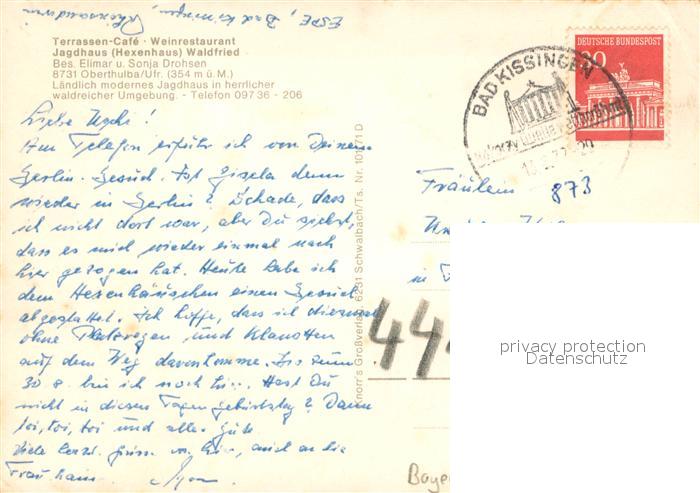 ESPE, Bad Kissingen, Rhönsanatorium
Terrassen-Café · Weinrestaurant
Jagdhaus (Hexenhaus) Waldfried
Bes. Elimar u. Sonja Drohsen
8731 Oberthulba/Ufr. (354 m ü. M.)
Ländlich modernes Jagdhaus in herrlicher
waldreicher Umgebung. - Telefon 097 36 - 206
Liebe Uschi!
Am Telefon erfuhr ich von Deinem
Berlin-Besuch. Ist Gisela denn
wieder in Berlin? Schade, dass
ich nicht dort war, aber Du siehst,
dass es mich wieder einmal nach
hier gezogen hat. Heute habe ich
dem Hexenhäuschen einen Besuch
abgestattet. Ich hoffe, dass ich diesmal
ohne Platzregen und
auf dem Weg davonkomme. Bis zum
30 8. bin ich noch hier. Hast Du
nicht in diesen Tagen Geburtstag? Dann
toi, toi, toi und alles Gute
Viele herzl. Grüsse von hier, auch an die
Frau
Knorr's Großverlag, 6231 Schwalbach/Ts. Nr. 10171 D
DEUTSCHE BUNDESPOST
60
BAD KISSINGEN
Fräulein
873
in
44
privacy protection
Datenschutz
Baye